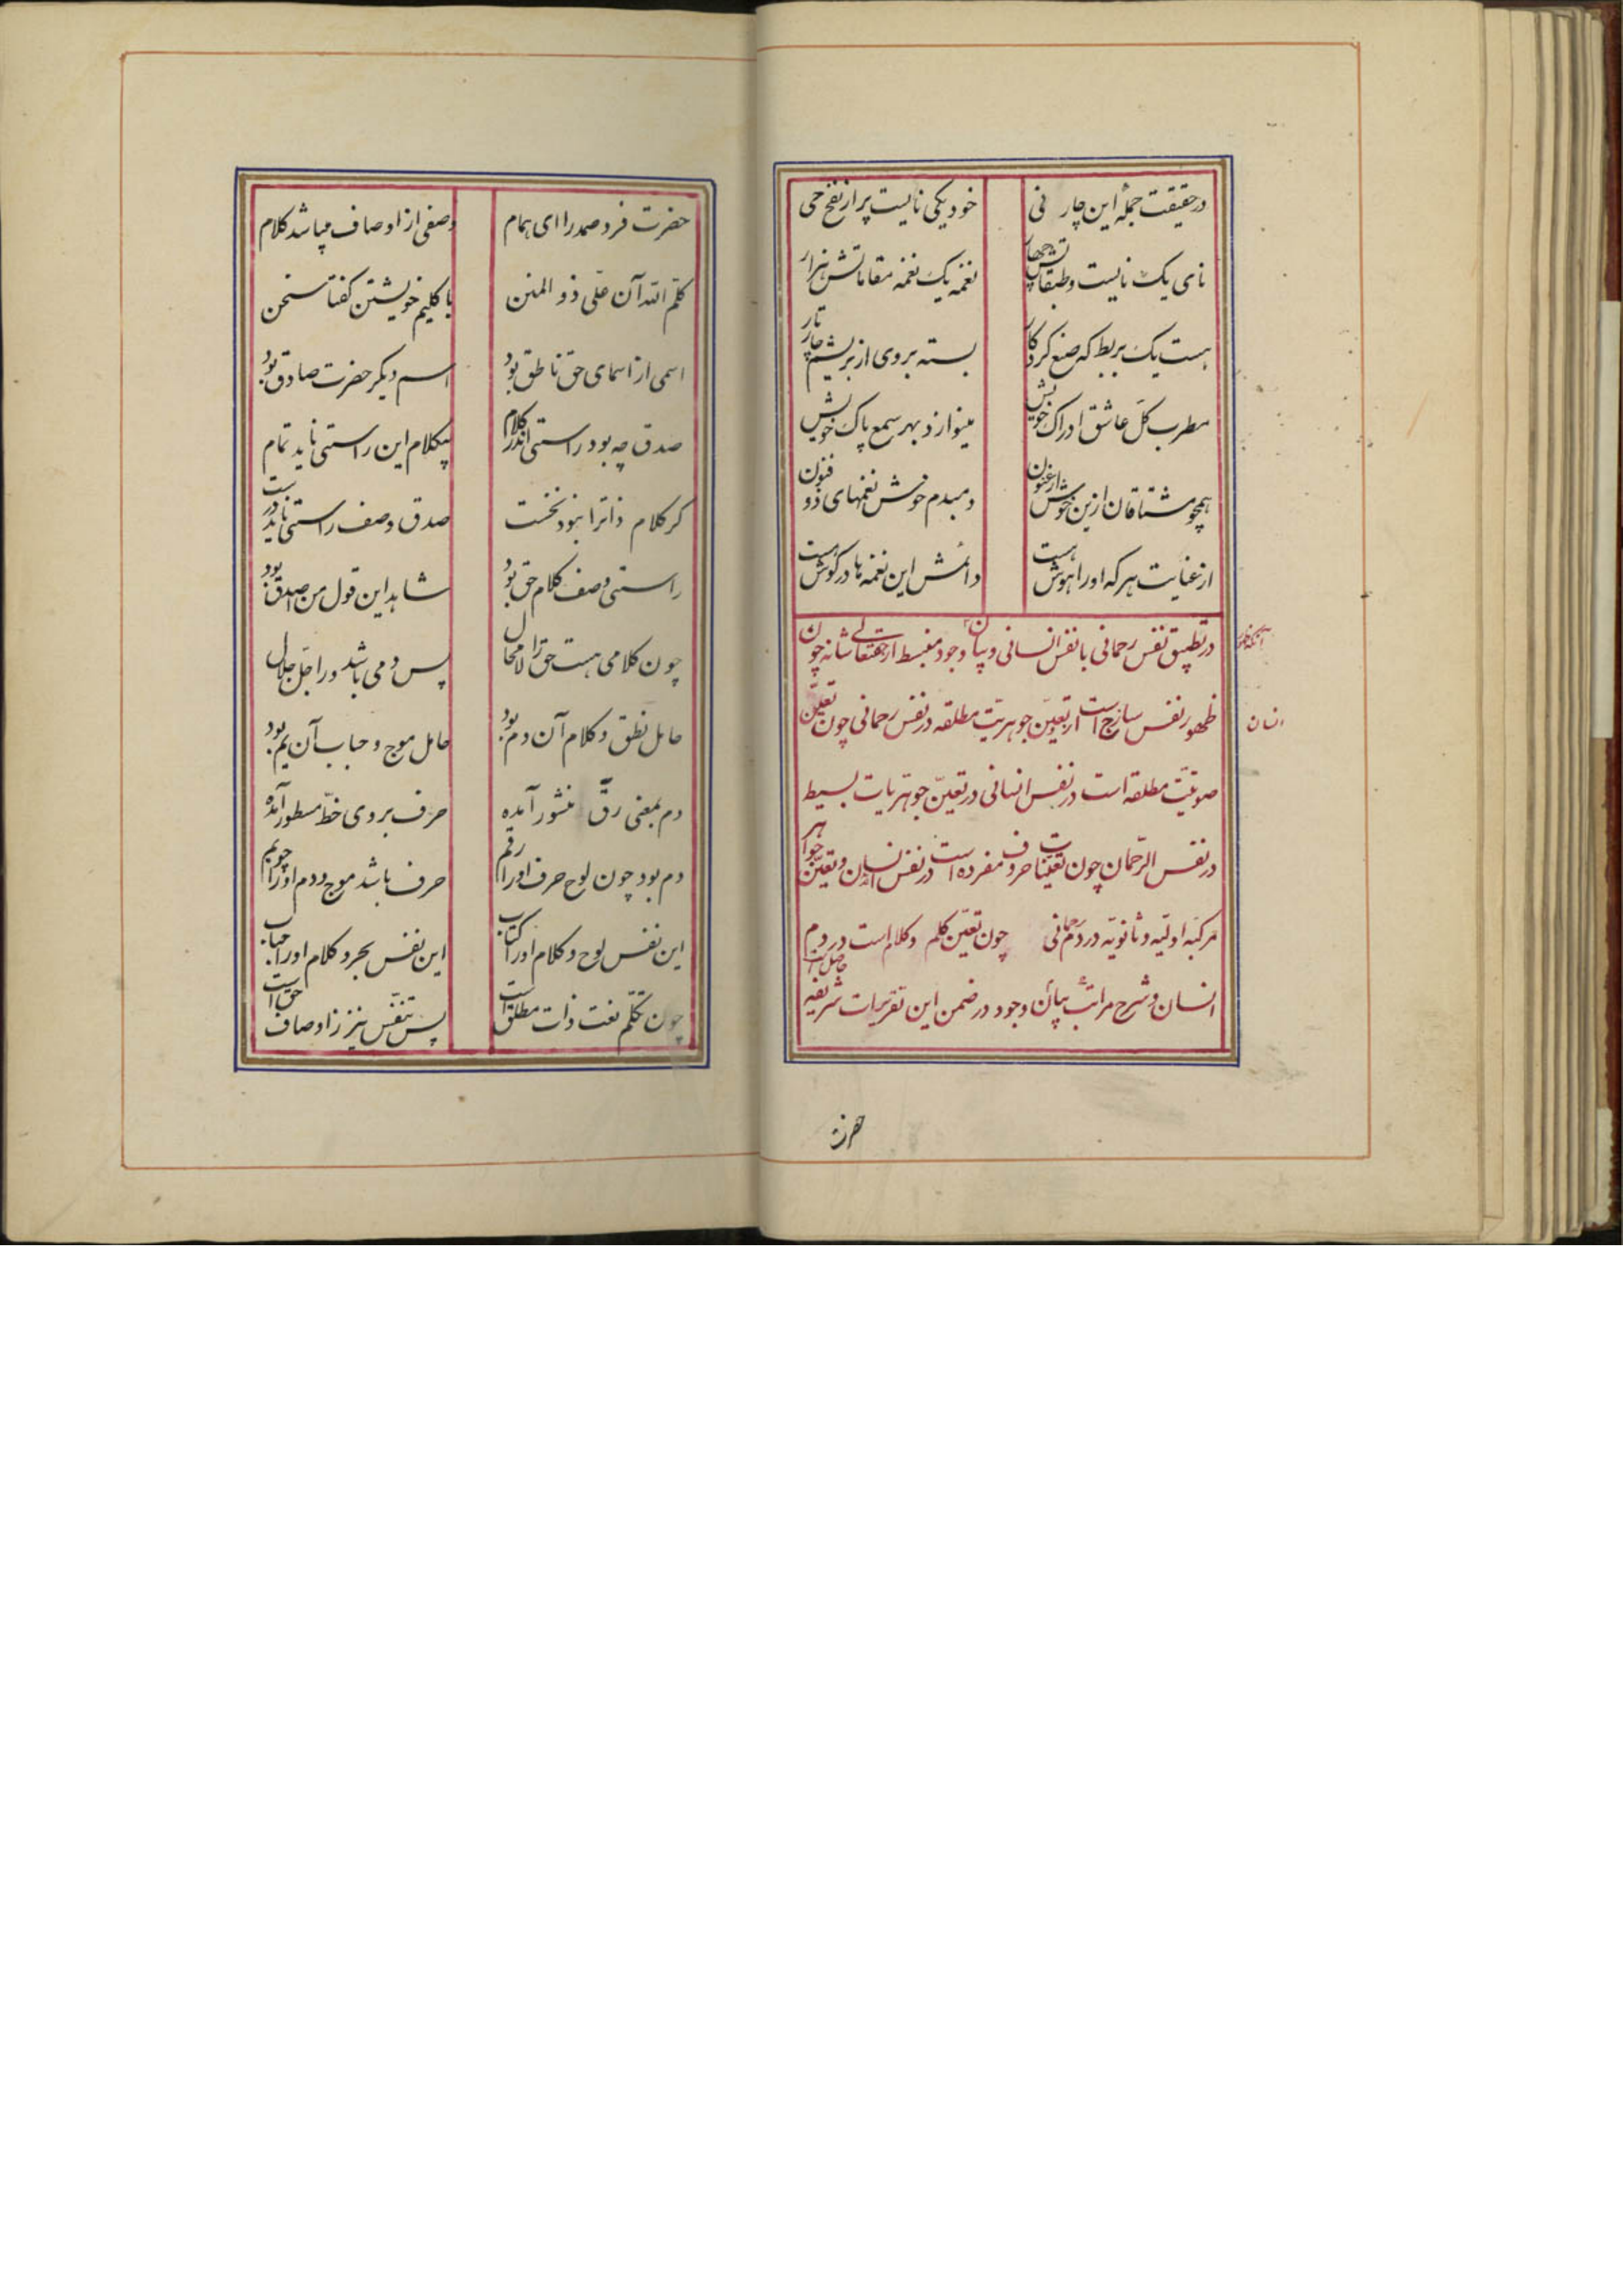 درحقیقت جملهٔ این چار نی خود یکی نائیست پر از نفخ حی
نای یک نائیست و طبقاتش چهار نغمه یک نغمه مقاماتش هزار
هست یک بربط که صنع کردکار بسته بر وی از بریشم چار تار
مطرب کل عاشق ادراک خویش مینوازد بهر سمع پاک خویش
همچو مشتاقان ازین خوش ارغنون دمبدم خوش نغمهای ذو فنون
از عنایت هر که او را هوش هست دائمش این نغمه ها در کوش هست
در تطبیق نفس رحمانی با نفس انسانی و بیان وجود منبسط از حقتعالی شانه چون
آنکه ظهور
ظهور نفس سازج است از تعین جوهریت مطلقه در نفس رحمانی چون تعین
انسان
صوتیت مطلقه است در نفس انسانی در تعین جوهریات بسیط
در نفس الرحمان چون تعینات حروف مفرده است در نفس انسان و تعین جواهر
مرکبه اولیه و ثانویه در دم رحمانی چون تعین کلم و کلام است در دم
انسان و شرح مراتب بیان وجود در ضمن این تقریرات شریفه حاصل است
حضرت
حضرت فرد صمد را ای همام وصفی از اوصاف میباشد کلام
کلم الله آن علی ذو المنن با کلیم خویشتن کفتا سخن
اسمی از اسمای حق ناطق بود اسم دیکر حضرت صادق بود
صدق چه بود راستی اندر کلام بیکلام این راستی ناید تمام
کر کلام ذاترا نبود نخست صدق وصف راستی ناید درست
راستی وصف کلام حق بود شاهد این قول من اصدق بود
چون کلامی هست حق را لامحال پس دمی باشد ورا جل جلال
حامل نطق و کلام آن دم بود حامل موج و حباب آن یم بود
دم بمعنی رق منشور آمده حرف بر وی خط مسطور آمده
دم بود چون لوح حرف اورا رقم حرف باشد موج و دم اورا چو یم
این نفس لوح و کلام اورا کتاب این نفس بحر و کلام اورا حباب
چون تکلم نعت ذات مطلق است پس تنفس نیز ز اوصاف حق است